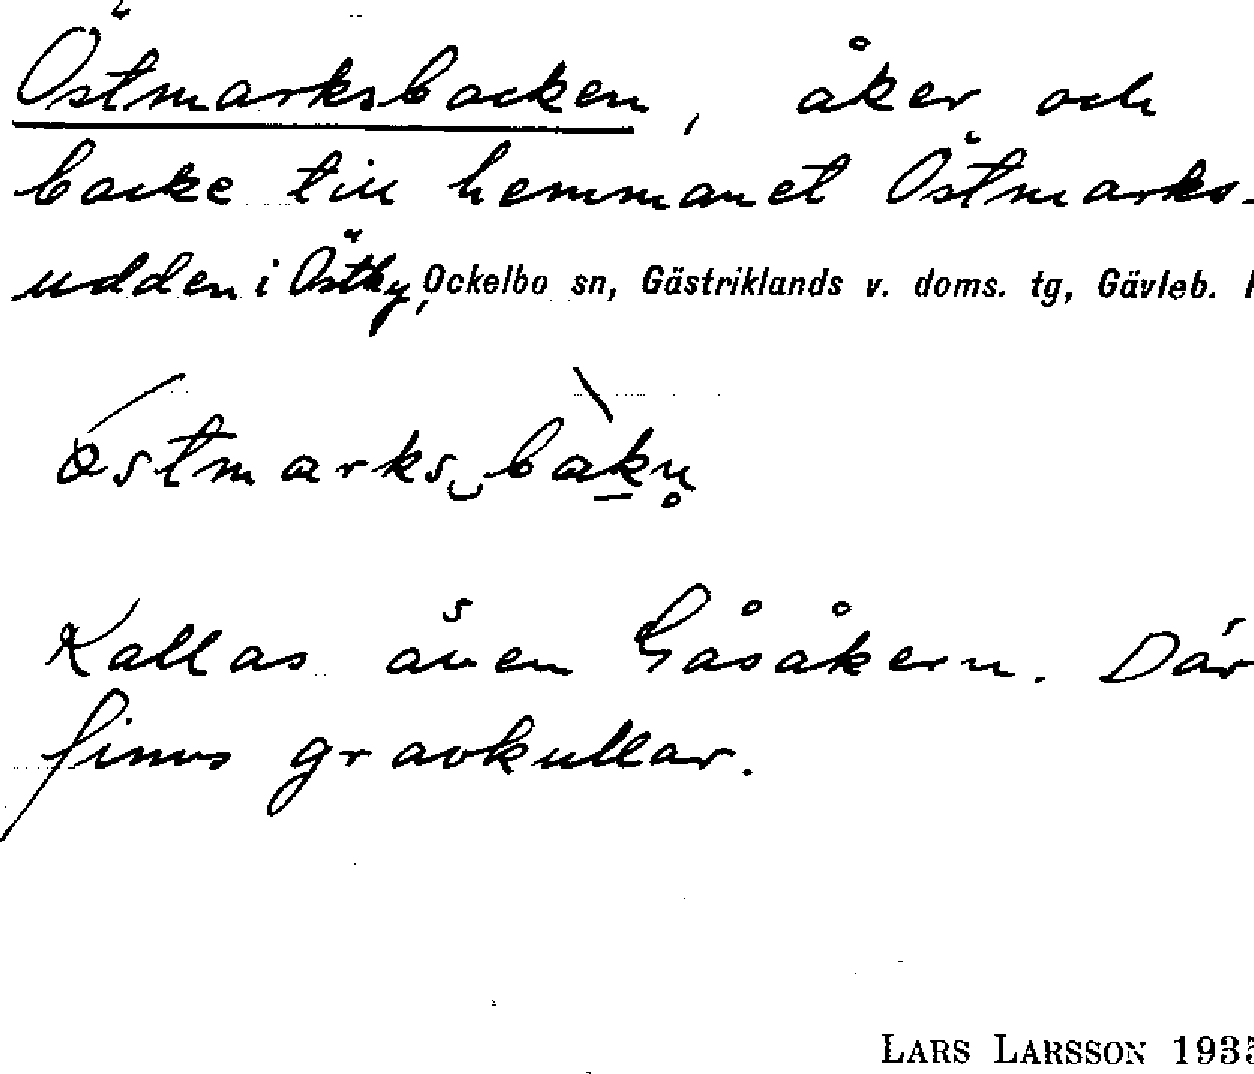 Östmarksbacken, åker och
backe till hemmanet Östmarks-
udden i Östby, Ockelbo sn, Gästriklands v. doms. tg, Gävleb.
Kallas även Gåsåkern. Där
finns gravkullar.
LARS LARSSON 1935